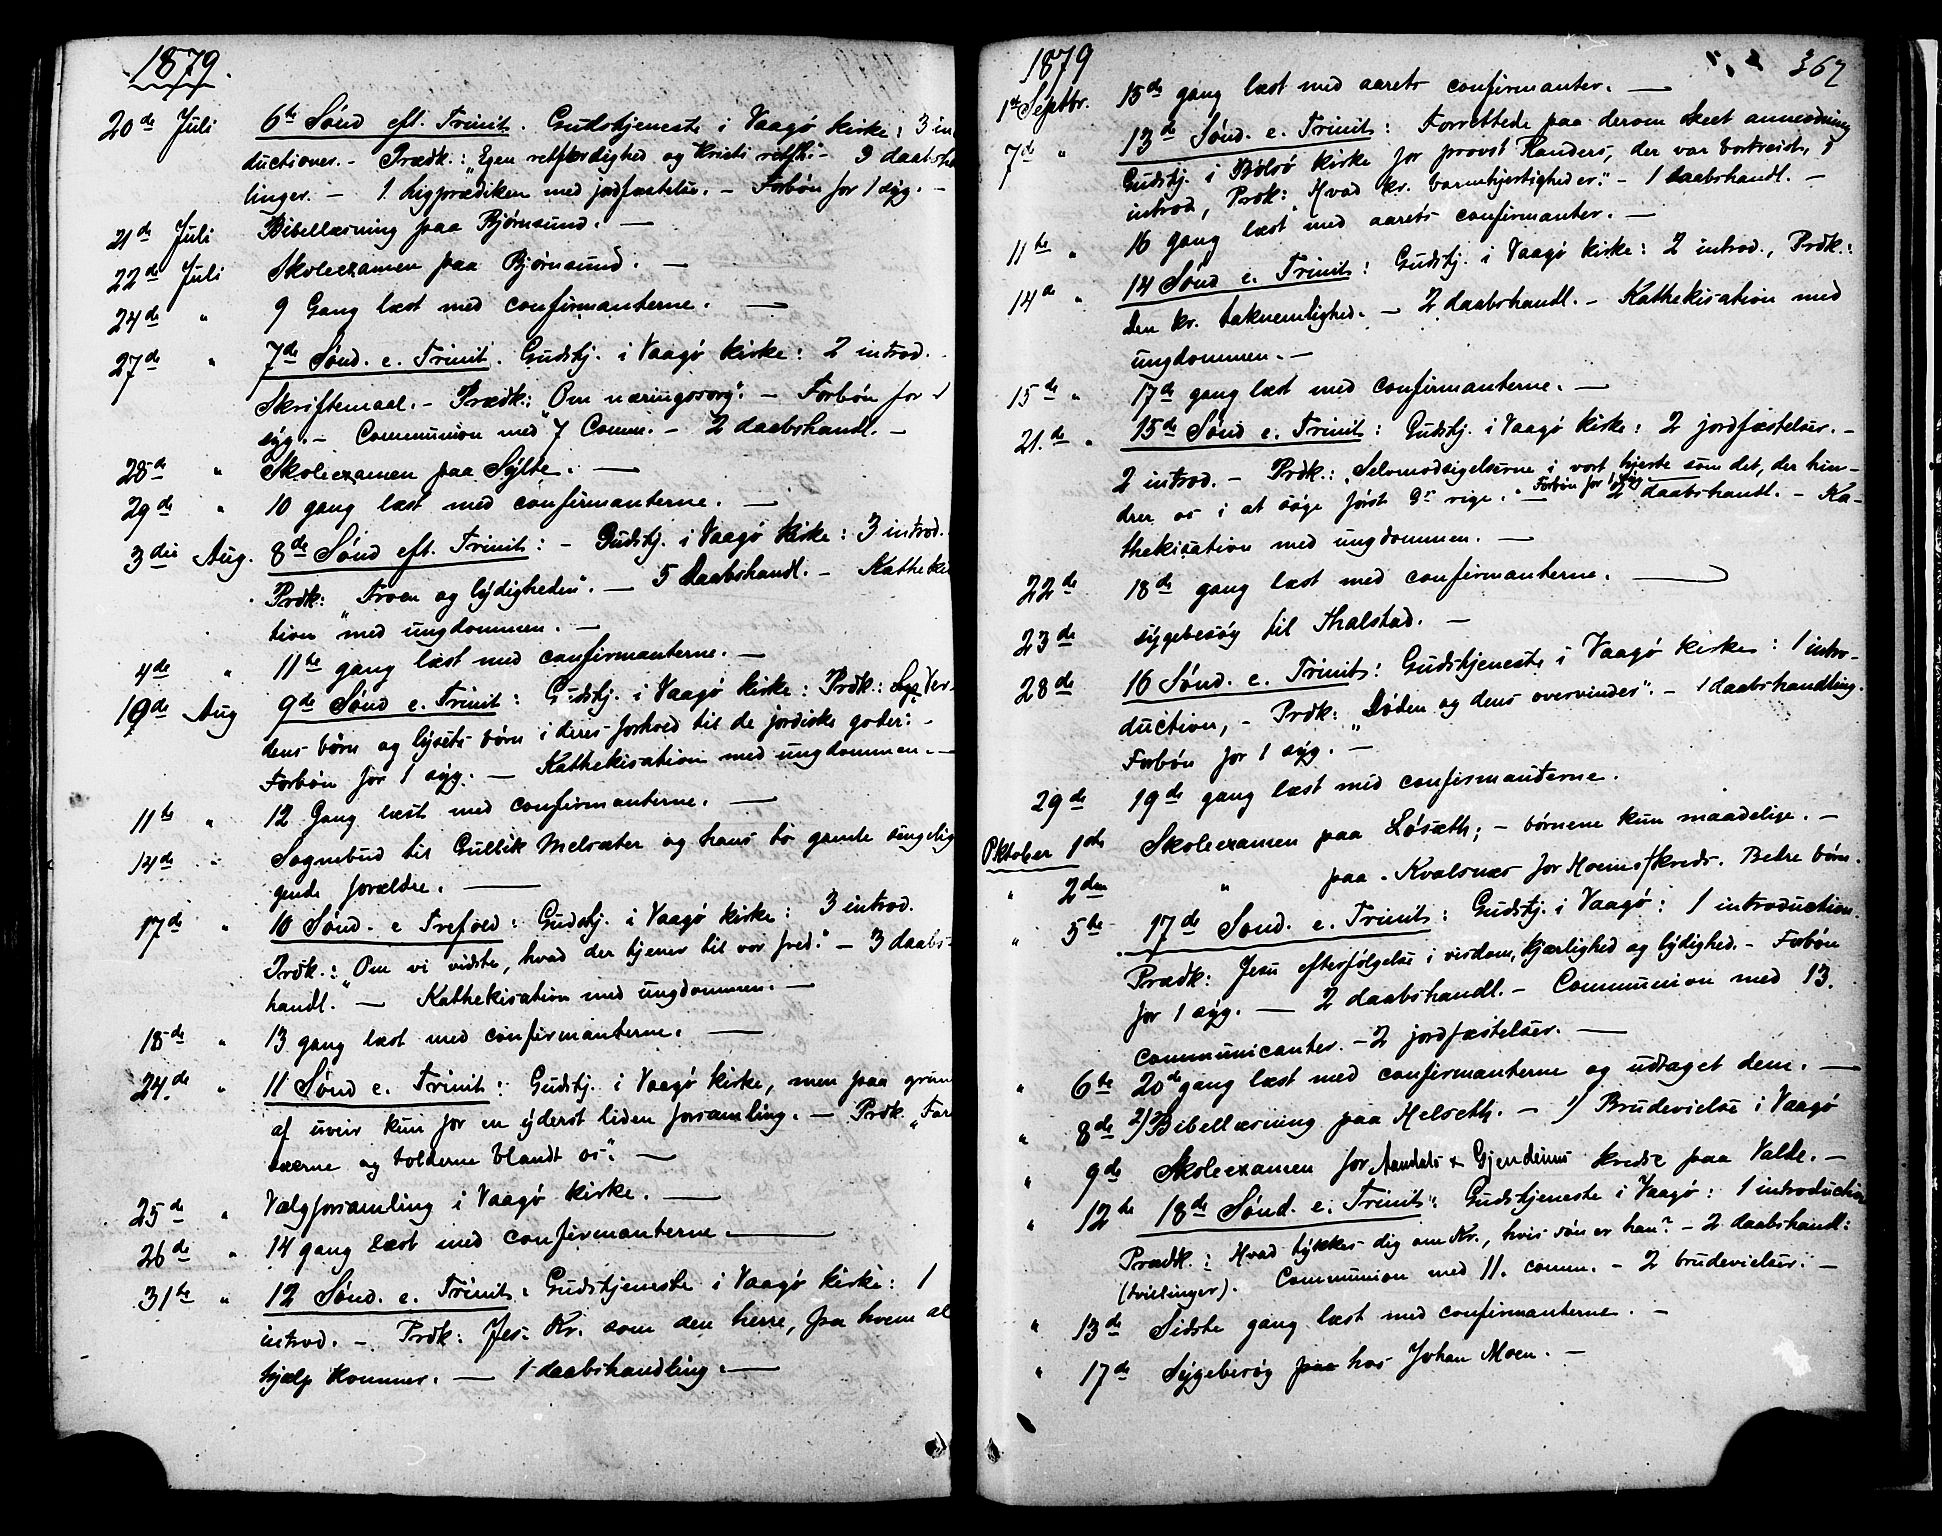 1879.
20de Juli 6te Sønd eft. Trinit. Gudstjeneste i Vaagø kirke: 3 in
ductioner. - Prædk.: "Egen retfærdighed og Kristi retfh:" - 3 daabsha
linger. - 1 ligprædiken med jordfæstelse. - Forbøn for 1 syg. -
21de Juli Bibellæsning paa Bjørnsund. -
22de Juli Skoleexamen paa Bjørnsund. -
24de " 9 Gang læst med confirmanterne. -
27de " 7de Sønd. e. Trinit. Gudstj. i Vaagø kirke: 2 introd. -
Skriftemaal. - Prædk.: "Om næringssorg". - Forbøn for 1
syg. - Communion med 7 Comm. - 2 daabshandl. -
28de " Skoleexamen paa Sylte. -
29de " 10 gang læst med confirmanterne. -
3die Aug. 8de Sønd eft. Trinit: - Gudstj. i Vaagø kirke: 3 introd. -
Prdk: "Troen og lydigheden". - 5 daabshandl. - Katheki
tion med ungdommen. -
4de " 11te gang læst med confirmanterne. -
10de Aug 9de Sønd e. Trinit: Gudstj. i Vaagø kirke: Prdk: Ver-
dens børn og lysets børn i deres forhold til de jordiske goder: -
Forbøn for 1 syg. - Kathekisation med ungdommen. -
11te " 12 Gang læst med confirmanterne. -
14de " Sognebud til Gullik Melsæter og hans to gamle sengelig
gende forældre. -
17de " 10 Sønd. e Trefold: Gudstj. i Vaagø kirke: 3 introd.
Prdk.: "Om vi vidste, hvad der tjener til vor fred." - 3 daabs-
handl. - Kathekisation med ungdommen. -
18de " 13 gang læst med confirmanterne. -
24de " 11 Sønd e. Trinit: Gudstj. i Vaagø kirke, men paa grun
af uveir kun for en yderst liden forsamling. - Prdk. "Fari
sæerne og tolderne blandt os". -
25de " Valgforsamling i Vaagø kirke. -
26de " 14 gang læst med confirmanterne. -
31te " 12 Sønd. e. Trinit: Gudstjeneste i Vaagø kirke: 1
introd. - Prdk: Jes. Kr. som den herre, fra hvem al
hjælp kommer. - 1 daabshandling. -
1879 367
1ste Septbr. 15de gang læst med aarets confirmanter. -
7de " 13de Sønd. e. Trinit: Forrettede paa derom skeet anmodning
Gudstj. i Bolsø kirke for provst Randers, der var bortreist, 5
introd, Prdk: "Hvad kr. barmhjertighed er". - 1 daabshandl. -
11te " 16 gang læst med aarets confirmanter. -
14de " 14 Sønd e. Trinit: Gudstj. i Vaagø kirke: 2 introd., Prdk.:
Den kr. taknemlighed. - 2 daabshandl. - Kathekisation med
ungdommen. -
15de " 17de gang læst med confirmanterne. -
21de " 15de Sønd e. Trinit: Gudstj. i Vaagø kirke: 2 jordfæstelser. -
2 introd. - Prdk.: "Selvmodsigelserne i vort hjerte som det, der hin-
drer os i at søge først Gs rige." - Forbøn for 1 syg 2 daabshandl. - Ka-
thekisation med ungdommen. -
22de 18de gang læst med confirmanterne. -
23de sygebesøg til Thalstad. -
28de 16 Sønd. e. Trinit: Gudstjeneste i Vaagø kirke: 1 intro-
duction, - Prdk: "Døden og dens overvinder". - 1 daabshandling.
Forbøn for 1 syg. -
29de 19de gang læst med confirmanterne.
Oktober 1ste Skoleexamen paa Løsæth; - børnene kun maadelige. -
" 2den " paa Kvalsnæs for Hoems kreds. Bedre børn.
" 5te 17de Sønd. e. Trinit: Gudstj. i Vaagø: 1 introduction.
Prædk: Jesu efterfølgelse i visdom, kjærlighed og lydighed. - Forbøn
for 1 syg. - 2 daabshandl. - Communion med 13
communicanter. - 2 jordfæstelser. -
" 6te 20de gang læst med confirmanterne og udtaget dem. -
" 8de 2) Bibellæsning paa Helseth. - 1) Brudevielse i Vaagø
" 9de Skoleexamen for Aandals & Gjendems kredse paa Valde. -
" 12te 18de Sønd. e. Trinit: Gudstjeneste i Vaagø: 1 introduction
Prædk.: Hvad tykkes dig om Kr., hvis søn er han? - 2 daabshandl:
(tvillinger). Communion med 11. comm. - 2 brudevielser: -
" 13de Sidste gang læst med confirmanterne. -
" 17de Sygebesøg paa hos Johan Moen. -